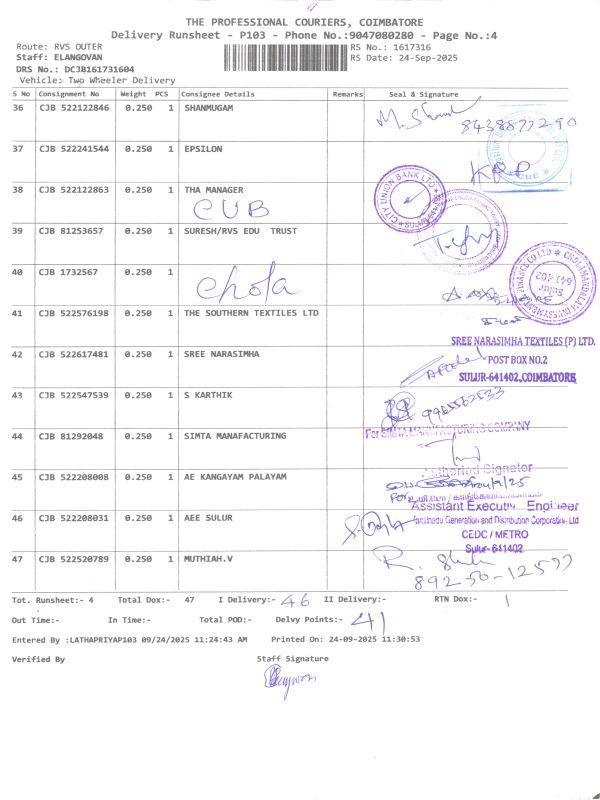 THE PROFESSIONAL COURIERS, COIMBATORE
Delivery Runsheet - P103 - Phone No.:9047080280 - Page No.:4
Route: RVS OUTER
RS No.: 1617316
Staff: ELANGOVAN
RS Date: 24-Sep-2025
DRS No.: DCJB161731604
Vehicle: Two Wheeler Delivery
S No Consignment No Weight PCS Consignee Details Remarks Seal & Signature
36 CJB 522122846 0.250 1 SHANMUGAM
8438877290
37 CJB 522241544 0.250 1 EPSILON
38 CJB 522122863 0.250 1 THA MANAGER
CUB
CITY UNION BANK LTD
39 CJB 81253657 0.250 1 SURESH/RVS EDU TRUST
40 CJB 1732567 0.250 1
Chola
Sulur
641 402
41 CJB 522576198 0.250 1 THE SOUTHERN TEXTILES LTD
SREE NARASIMHA TEXTILES (P) LTD.
42 CJB 522617481 0.250 1 SREE NARASIMHA
POST BOX NO.2
SULUR-641402, COIMBATORE
43 CJB 522547539 0.250 1 S KARTHIK
44 CJB 81292048 0.250 1 SIMTA MANAFACTURING
For SIMTA MANUFACTURING COMPANY
Authorised Signator
45 CJB 522208008 0.250 1 AE KANGAYAM PALAYAM
46 CJB 522208031 0.250 1 AEE SULUR
Assistant Executive Engineer
Tamilnadu Generation and Distribution Corporation Ltd
CEDC / METRO
Sulur-641402
47 CJB 522520789 0.250 1 MUTHIAH.V
892-50-12577
Tot. Runsheet:- 4 Total Dox:- 47 I Delivery:- 46 II Delivery:- RTN Dox:- 1
Out Time:- In Time:- Total POD:- Delvy Points:- 41
Entered By :LATHAPRIYAP103 09/24/2025 11:24:43 AM Printed On: 24-09-2025 11:30:53
Verified By Staff Signature